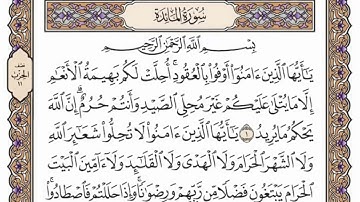 سُورَةُ المَائِدَةِ
بِسْمِ اللَّهِ الرَّحْمَٰنِ الرَّحِيمِ
يَٰٓأَيُّهَا ٱلَّذِينَ ءَامَنُوٓا۟ أَوْفُوا۟ بِٱلْعُقُودِ ۚ أُحِلَّتْ لَكُم بَهِيمَةُ ٱلْأَنْعَٰمِ
إِلَّا مَا يُتْلَىٰ عَلَيْكُمْ غَيْرَ مُحِلِّى ٱلصَّيْدِ وَأَنتُمْ حُرُمٌ ۗ إِنَّ ٱللَّهَ
يَحْكُمُ مَا يُرِيدُ ١ يَٰٓأَيُّهَا ٱلَّذِينَ ءَامَنُوا۟ لَا تُحِلُّوا۟ شَعَٰٓئِرَ ٱللَّهِ
وَلَا ٱلشَّهْرَ ٱلْحَرَامَ وَلَا ٱلْهَدْىَ وَلَا ٱلْقَلَٰٓئِدَ وَلَآ ءَآمِّينَ ٱلْبَيْتَ
ٱلْحَرَامَ يَبْتَغُونَ فَضْلًا مِّن رَّبِّهِمْ وَرِضْوَٰنًا ۚ وَإِذَا حَلَلْتُمْ فَٱصْطَادُوا۟ ۚ
نصف
الحزب
١١